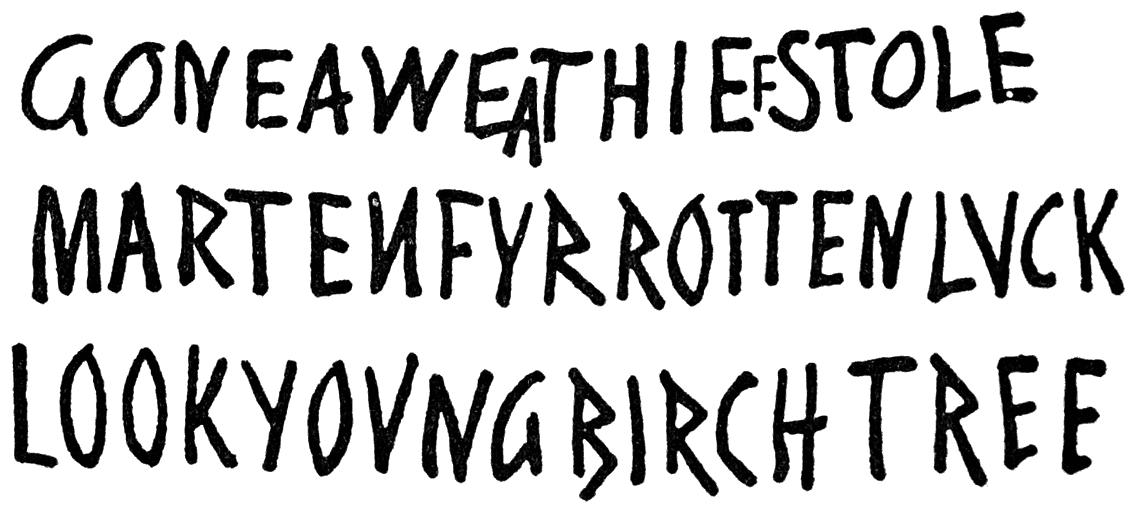 GONEAWEATHIEFSTOLE
MARTENFYRROTTENLVCK
LOOKYOVNGBIRCHTREE